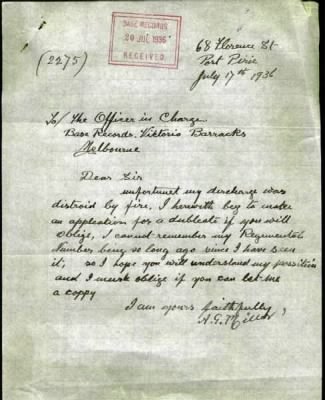 BASE RECORDS
20 JUL 1936
RECEIVED
(2275)
68 Florence St
Port Pirie
July 17th 1936
To/ The Officer in Charge
Base Records. Victoria Barracks
Melbourne
Dear Sir
unfortunet my discharge was
distroid by fire, I herewith beg to make
an application for a dublicate if you will
oblige, I cannot remember my Regimental
Number being so long ago since I have seen
it, so I hope you will understand my possition
and I much oblige if you can let me
a coppy
I am yours faithfully
A.G. Miller